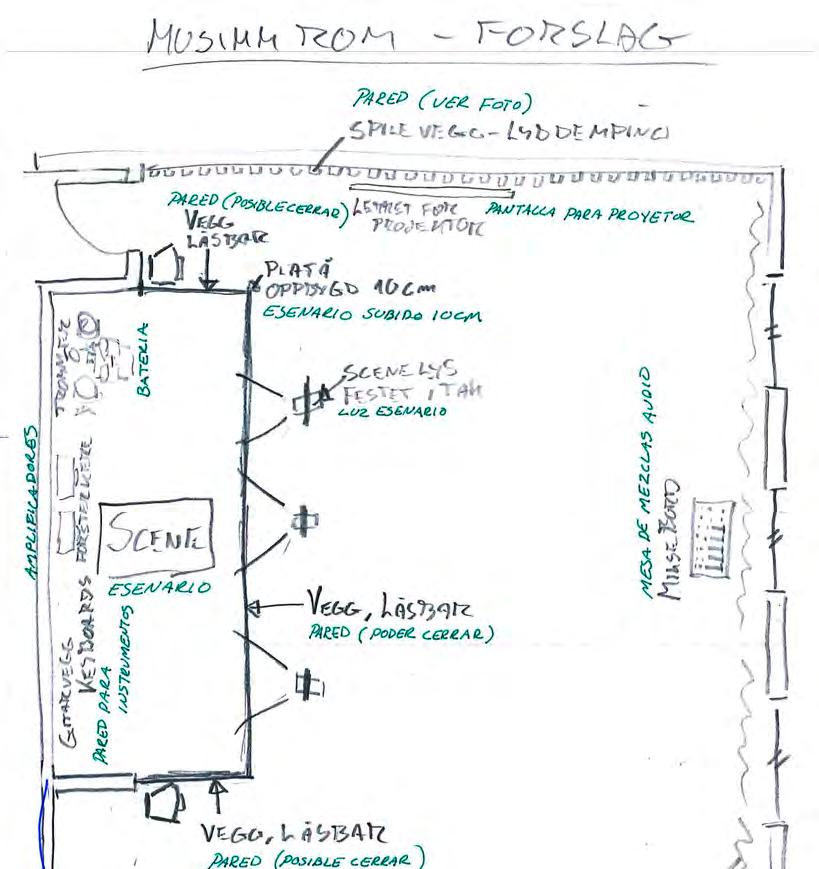 MUSIKK ROM - FORSLAG
PARED (VER FOTO)
SPILEVEGG - LYDDEMPING
PARED (POSIBLE CERRAR)
VEGG
LÅSBAR
LERRET FOR
PROJEKTOR
PANTALLA PARA PROYETOR
PLATÅ
OPPBYGD 10cm
ESENARIO SUBIDO 10CM
TROMMER
BATERIA
SCENELYS
FESTET I TAK
LUZ ESENARIO
AMPLIFICADORES
FORSTERKERE
SCENE
ESENARIO
MESA DE MEZCLAS AUDIO
MIKSEBORD
GITARVEGG
KEYBOARDS
PARED PARA
INSTRUMENTOS
VEGG, LÅSBAR
PARED (PODER CERRAR)
VEGG, LÅSBAR
PARED (POSIBLE CERRAR)